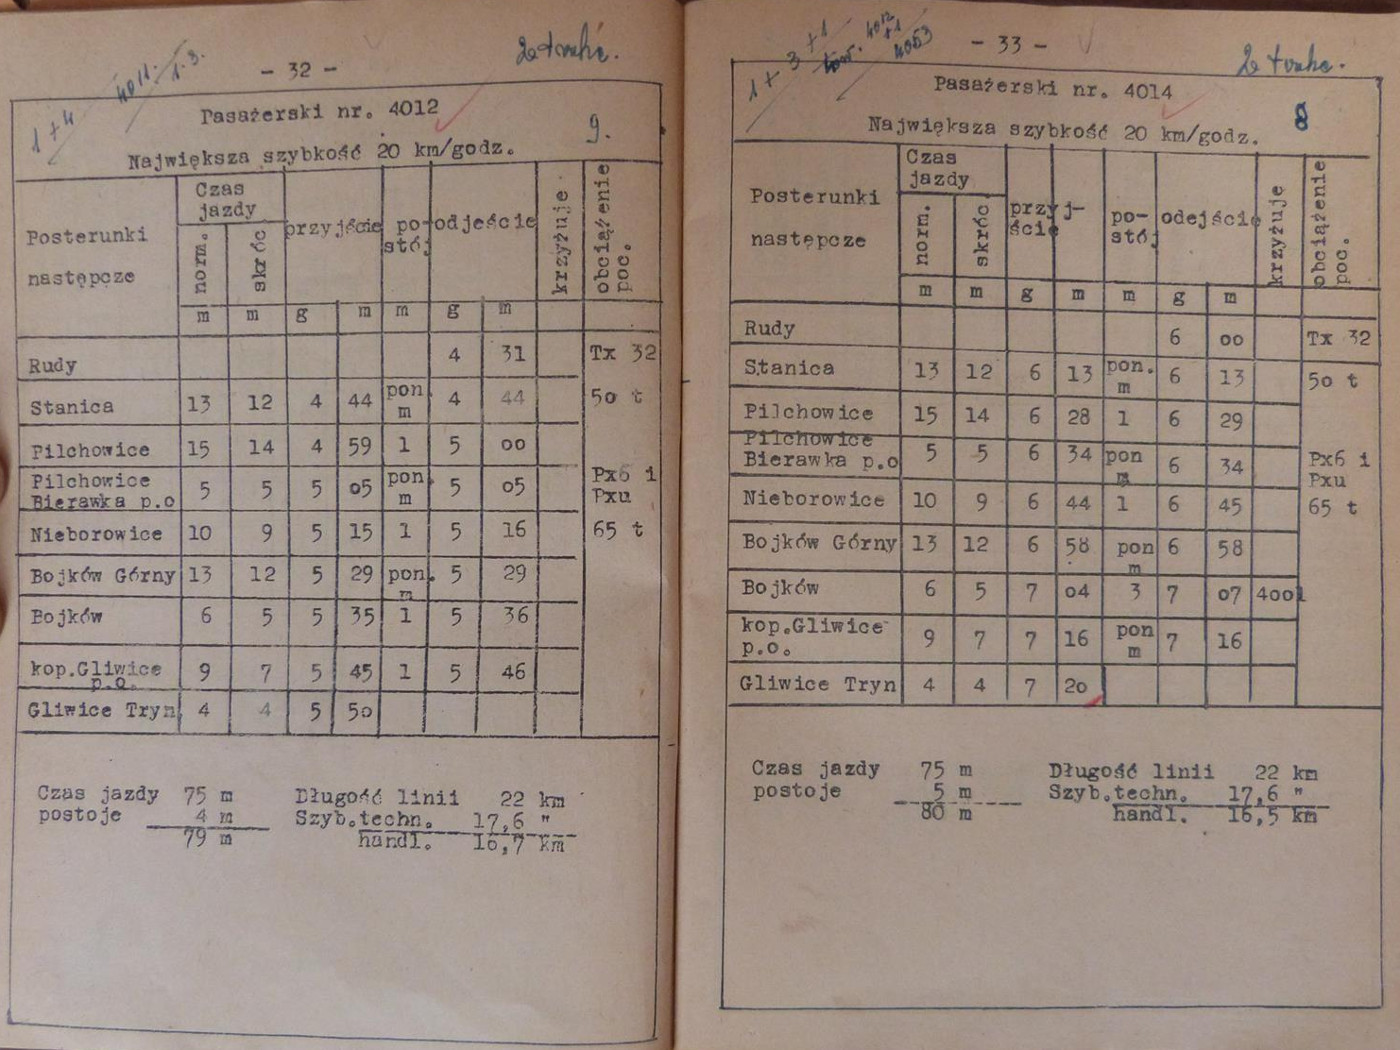 - 32 -
1 + 4
4011.
1.3.
Pasażerski nr. 4012
9.
Największa szybkość 20 km/godz.
Posterunki następcze
Czas jazdy
przyjście
po-stój
odjeście
krzyżuje
obciążenie poc.
norm.
skróc
m m g m m g m
Rudy 4 31 Tx 32
Stanica 13 12 4 44 pon m 4 44 5o t
Pilchowice 15 14 4 59 1 5 oo
Pilchowice Bierawka p.o 5 5 5 o5 pon m 5 o5 Px6 i Pxu
Nieborowice 10 9 5 15 1 5 16 65 t
Bojków Górny 13 12 5 29 pon. m 5 29
Bojków 6 5 5 35 1 5 36
kop.Gliwice p.o. 9 7 5 45 1 5 46
Gliwice Tryn 4 4 5 5o
Czas jazdy 75 m Długość linii 22 km
postoje 4 m Szyb.techn. 17,6 "
79 m handl. 16,7 km
- 33 -
1 + 3 + 1
4012
+1
4053
Pasażerski nr. 4014
8
Największa szybkość 20 km/godz.
Posterunki następcze
Czas jazdy
przyj-ście
po-stój
odejście
krzyżuje
obciążenie poc.
norm.
skróc
m m g m m g m
Rudy 6 oo Tx 32
Stanica 13 12 6 13 pon. m 6 13 5o t
Pilchowice 15 14 6 28 1 6 29
Pilchowice Bierawka p.o 5 5 6 34 pon m 6 34 Px6 i Pxu
Nieborowice 10 9 6 44 1 6 45 65 t
Bojków Górny 13 12 6 58 pon m 6 58
Bojków 6 5 7 o4 3 7 o7 4001
kop.Gliwice p.o. 9 7 7 16 pon m 7 16
Gliwice Tryn 4 4 7 2o
Czas jazdy 75 m Długość linii 22 km
postoje 5 m Szyb.techn. 17,6 "
80 m handl. 16,5 km